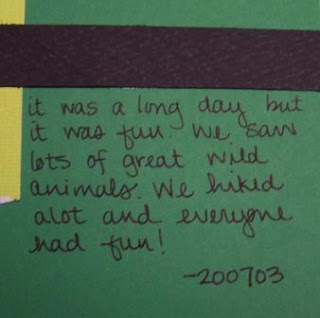 it was a long day but
it was fun. We saw
lots of great wild
animals. We hiked
alot and everyone
had fun!
-200703